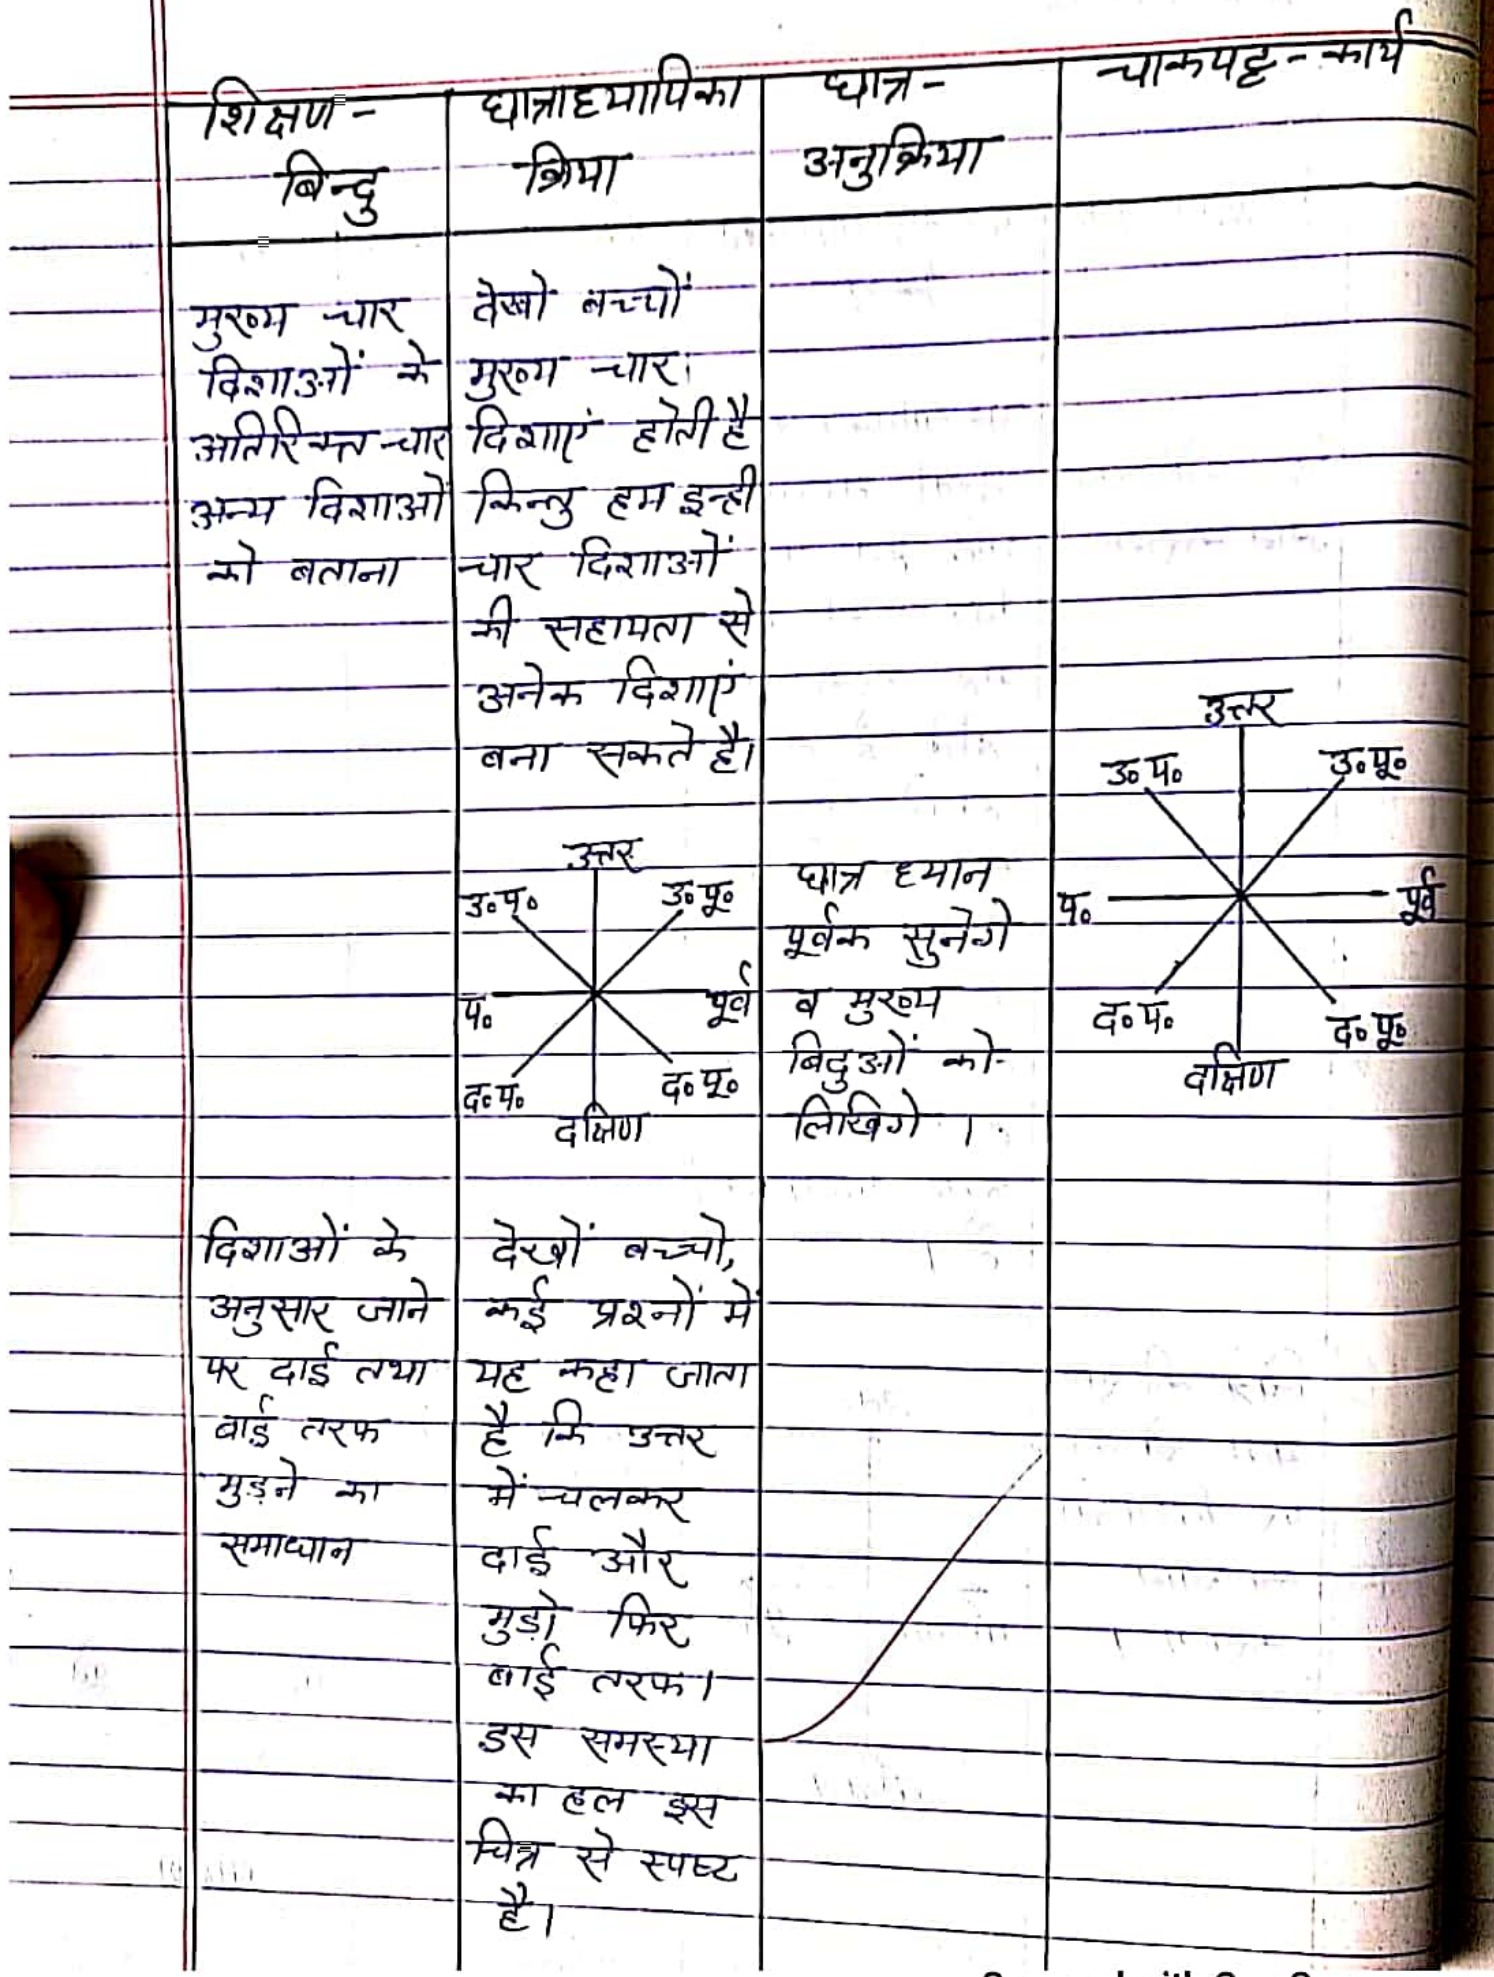 शिक्षण-
बिन्दु
छात्राध्यापिका
क्रिया
छात्र-
अनुक्रिया
चाकपट्ट-कार्य
मुख्य चार
दिशाओं के
अतिरिक्त चार
अन्य दिशाओं
को बताना
देखो बच्चों
मुख्य चार
दिशाएं होती है
किन्तु हम इन्ही
चार दिशाओं
की सहायता से
अनेक दिशाएं
बना सकते है।
उत्तर
उ०प०
उ०पू०
प०
पूर्व
द०प०
द०पू०
दक्षिण
छात्र ध्यान
पूर्वक सुनेगे
व मुख्य
बिदुओं को
लिखेगे ।
उत्तर
उ०प०
उ०पू०
प०
पूर्व
द०प०
द०पू०
दक्षिण
दिशाओं के
अनुसार जाने
पर दाई तथा
बाई तरफ
मुड़ने का
समाधान
देखों बच्चो,
कई प्रश्नों में
यह कहा जाता
है कि उत्तर
में चलकर
दाई और
मुड़ो फिर
बाई तरफ।
इस समस्या
का हल इस
चित्र से स्पष्ट
है।